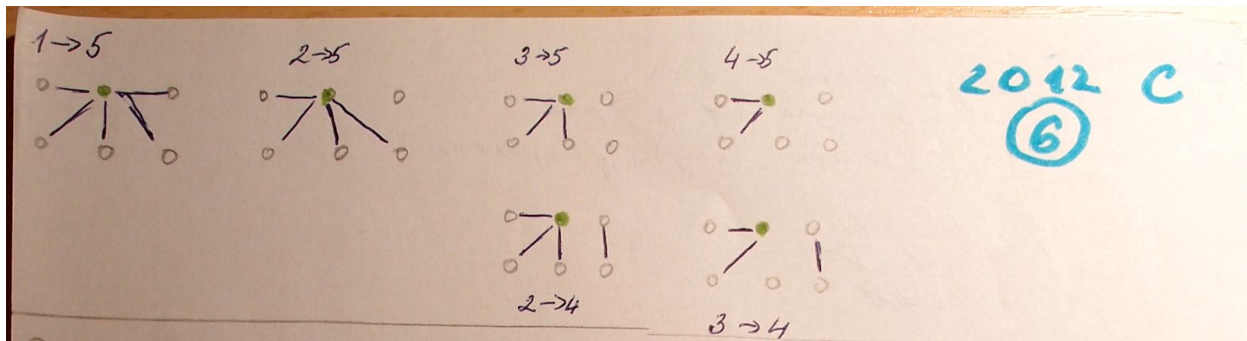 1→5
2→5
3→5
4→5
2012 C
6
2→4
3→4